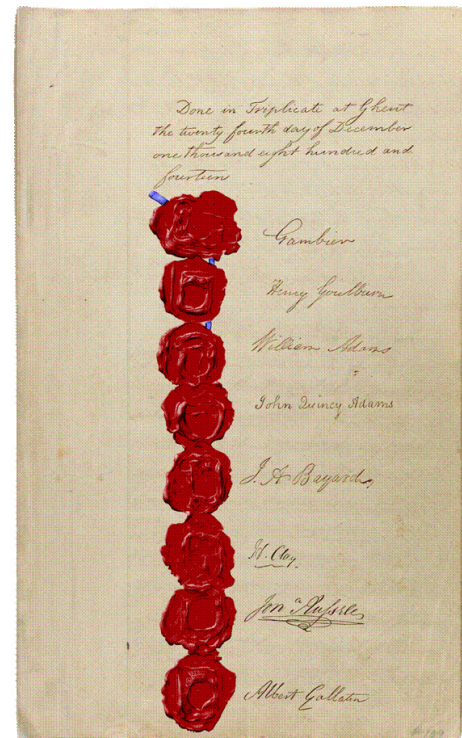 Done in Triplicate at Ghent
the twenty fourth day of December
one thousand eight hundred and
fourteen
Gambier
Henry Goulburn
William Adams
John Quincy Adams
J. A. Bayard
H. Clay.
Jon.ª Russell
Albert Gallatin